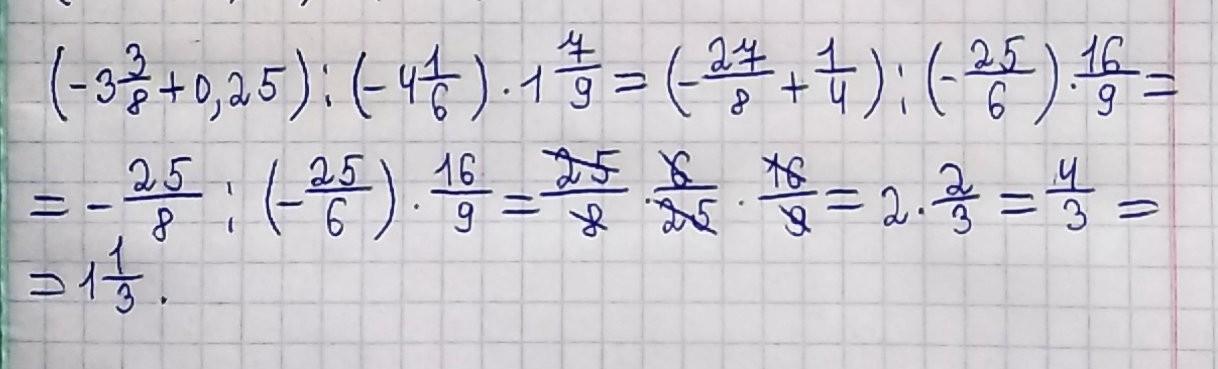 (-3 3/8 + 0,25) : (-4 1/6) · 1 7/9 = (-27/8 + 1/4) : (-25/6) · 16/9 =
= -25/8 : (-25/6) · 16/9 = 25/8 · 6/25 · 16/9 = 2 · 2/3 = 4/3 =
= 1 1/3 .